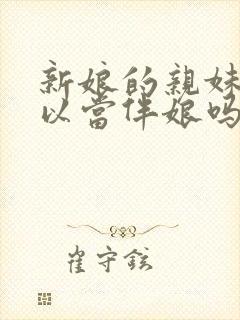 新娘的親妹
以當伴娘嗎
崔守鉉